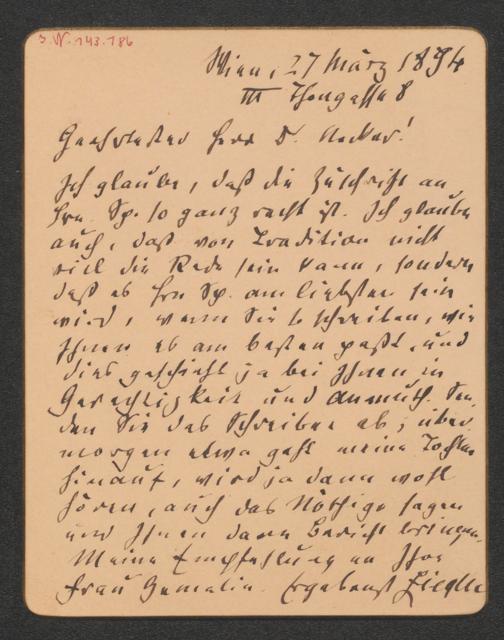 J.N. 143.186
Wien, 27 März 1894
III Thongasse 8
Geehrtester Herr D. Necker!
Ich glaube, daß die Zuschrift an
Hrn. Sp. so ganz recht ist. Ich glaube
auch, daß von Tradition nicht
viel die Rede sein kann, sondern
daß es Hrn Sp. am liebsten sein
wird, wenn Sie so schreiben, wie
Ihnen es am besten paßt, und
dies geschieht ja bei Ihnen in
Gerechtigkeit und Anmuth. Sen-
den Sie das Schreiben ab; über-
morgen etwa geht meine Tochter
hinauf, wird ja dann wohl
hören, auch das Nöthige sagen
und Ihnen dann Bericht bringen.
Meine Empfehlung an Ihre
Frau Gemalin. Ergebenst Ziegler